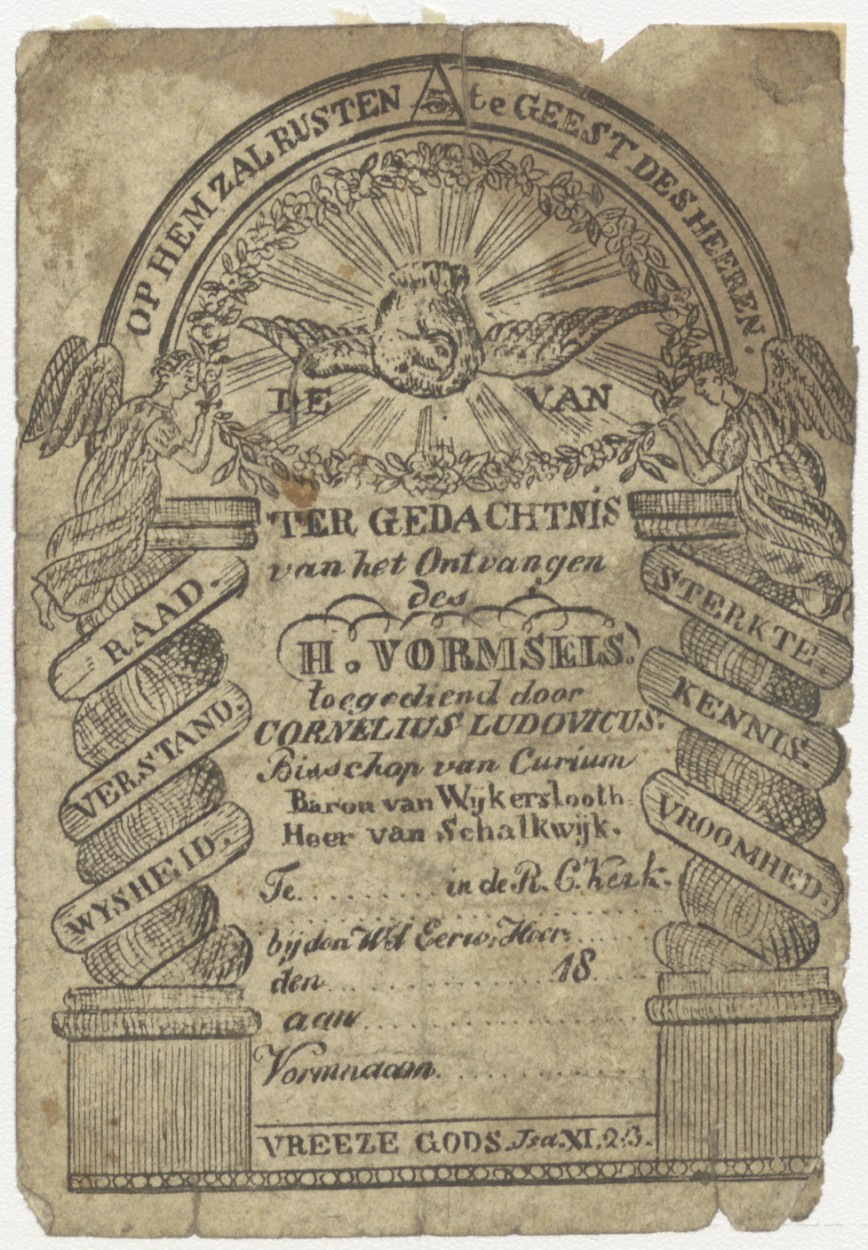 OP HEM ZAL RUSTEN te GEEST DES HEEREN.
DE VAN
TER GEDACHTNIS
van het Ontvangen
des
H. VORMSELS.
toegediend door
CORNELIUS LUDOVICUS.
Bisschop van Curium
Baron van Wijkerslooth
Heer van Schalkwijk.
Te. . . . . . . . . in de R. C. Kerk.
bij den Wel Eerw. Heer. . . . .
den. . . . . . . . . . 18. . . .
aan. . . . . . . . . . . . .
Vormnaam. . . . . . . . . . .
VREEZE GODS. Isa. XI. 2.3.
RAAD.
VERSTAND.
WYSHEID.
STERKTE.
KENNIS.
VROOMHED.